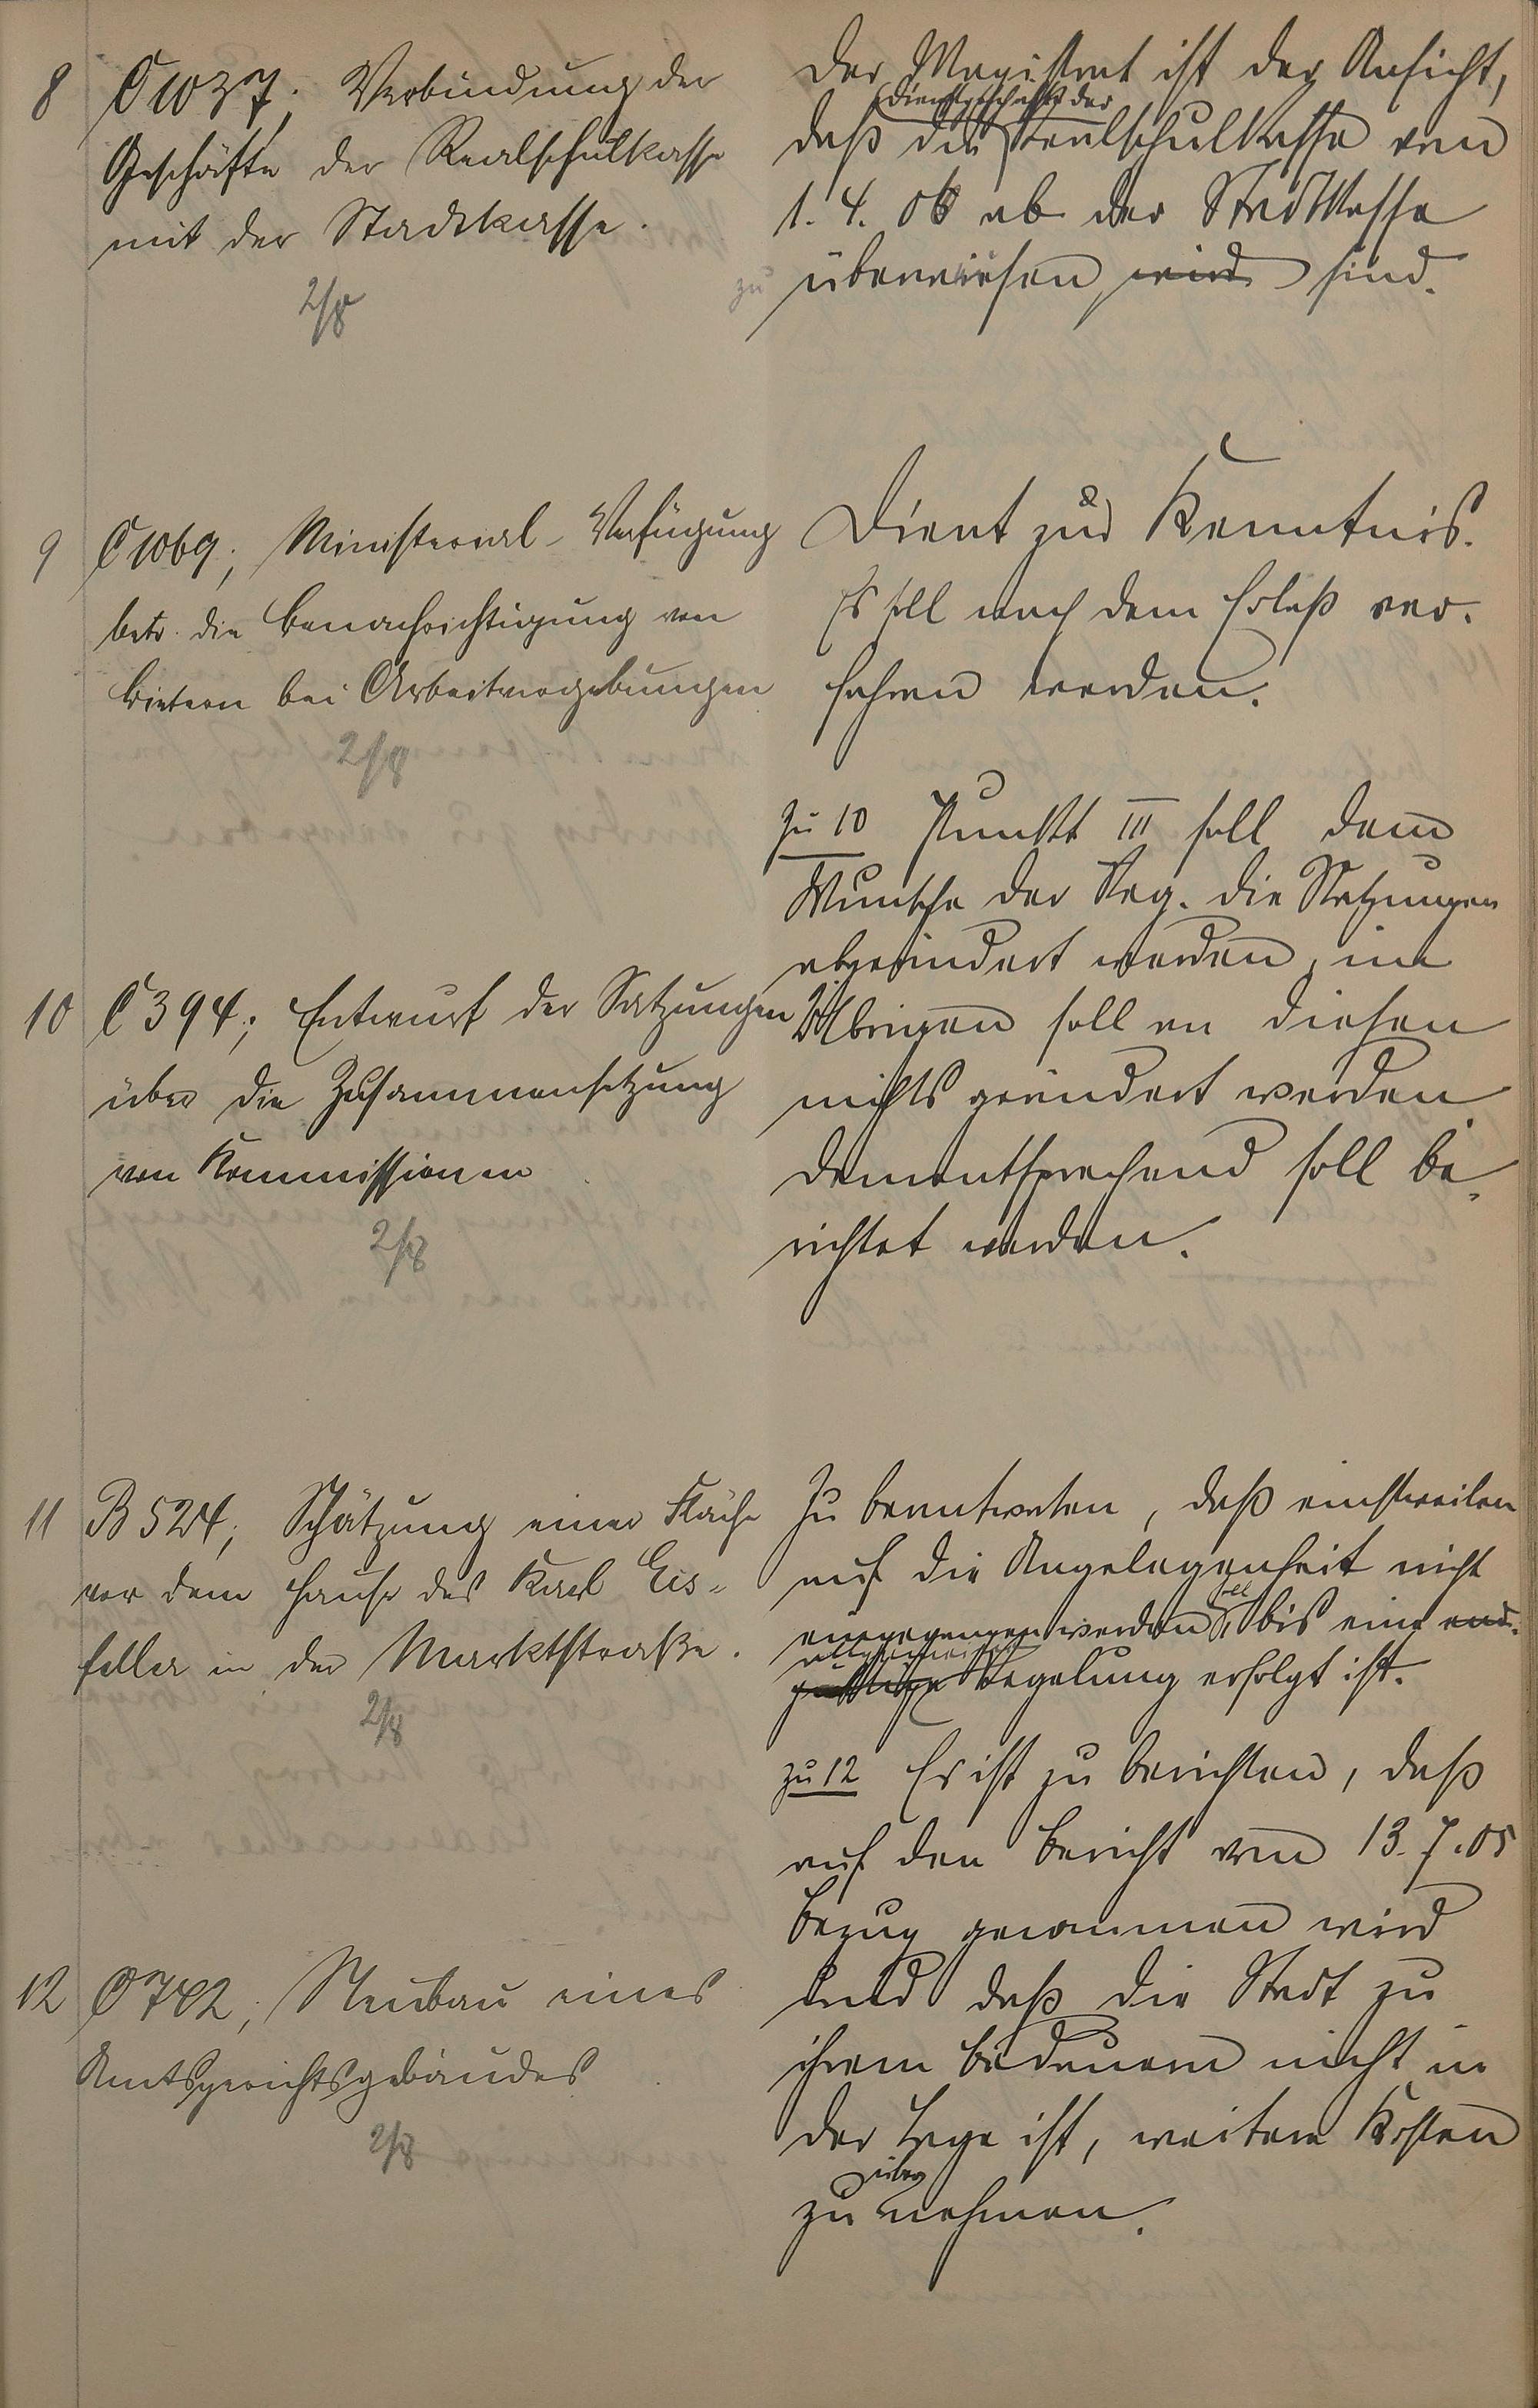 8 C 1037; Verbindung der
Geschäfte der Realschulkasse
mit der Stadtkasse.
2/8
Der Magistrat ist der Ansicht,
Dienstgeschäfte der
daß die Realschulkasse vom
1. 4. 06 ab der Stadtkasse
zu überweisen wird sind.
9 C 1069; Ministerial-Verfügung
betr. die Benachrichtigung von
Bietern bei Arbeitvergebungen
2/8
Dient zur Kenntnis.
Es soll nach dem Erlaß ver-
fahren werden.
10 C 394; Entwurf der Satzungen
über die Zusammensetzung
von Kommissionen
2/8
zu 10 Punkt III soll dem
Wunsche der Reg. die Satzungen
abgeändert werden, im
Übrigen soll an diesen
nichts geändert werden
dementsprechend soll be-
richtet werden.
11 B 524; Schätzung einer Fläche
vor dem Hause des Karl Eis-
feller in der Marktstraße.
2/8
Zu beantworten, daß einstweilen
auf die Angelegenheit nicht
soll
eingegangen werden, bis eine end-
allgemeine
gültige Regelung erfolgt ist.
12 C 742; Neubau eines
Amtsgerichtsgebäudes
2/8
zu 12 Es ist zu berichten, daß
auf den Bericht vom 13. 7. 05
Bezug genommen wird
und daß die Stadt zu
ihrem Bedauern nicht in
der Lage ist, weitere Kosten
über
zu nehmen.